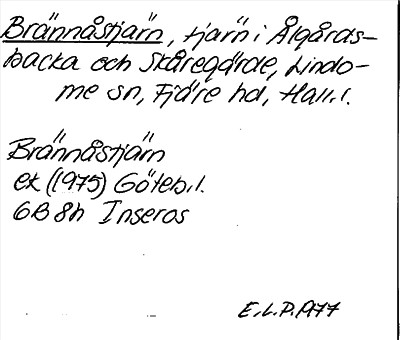 Brännåstjärn, tjärn i Älgårds-
backa och Skåregärde, Lindo-
me sn, Fjäre hd, Hall. l.
Brännåstjärn
ek (1975) Göteb. l.
6B 8h Inseros
E.L.P. 1977